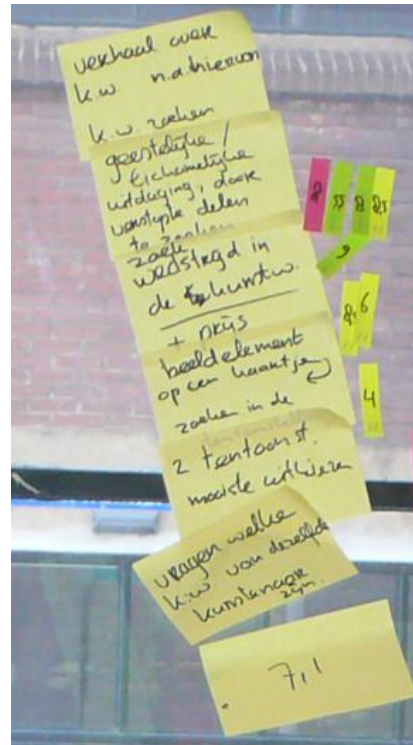 verhaal over
k.w. n.a. hiervan
k.w. zoeken
geestelijke /
lichamelijke
uitdaging, door
verstopte delen
te zoeken
zoek
wedstrijd in
de kunstw.
+ prijs
beeldelement
op een kaartje
zoeken in de
2 tentoonst.
mooiste uitkiezen
vragen welke
k.w van dezelfde
kunstenaar
zijn.
7,1
8
8
8,5
9
8,6
4